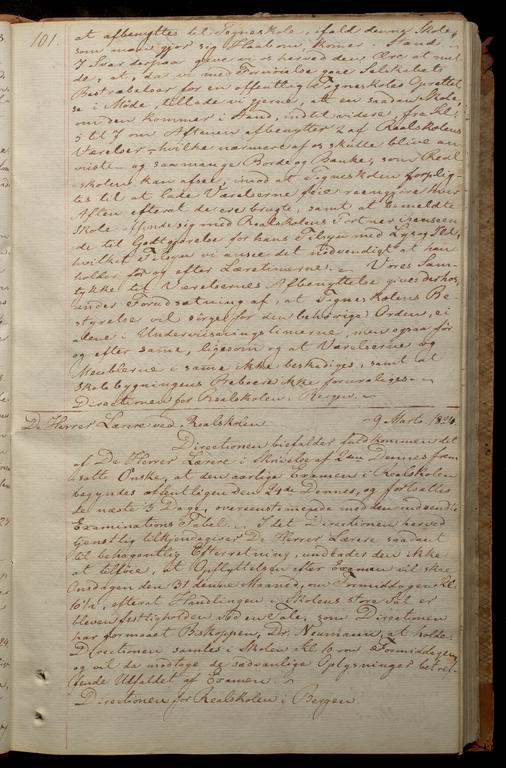 101.
at afbenyttes til Tegneskole, ifald denne Skole,
som man gjør sig Haab om, kommer i Stand.
I Svar derpaa give vi os herved den Ære at mel-
de, at, da vi med Fornøielse see Selskabets
Bestræbelser for en offentlig Tegneskoles Oprettel-
se i Møde, tillade vi gjerne, at en saadan Skole,
om den kommer i Stand, indtil videre, fra Kl.
5 til 7 om Aftenen afbenytter 2 af Realskolens
Værelser – hvilke nærmere af os skulle blive an-
viste – og saa mange Borde og Bænke, som Real-
skolen kan afsee, imod at Tegneskolen forplig-
tes til at lade Værelserne feie reengjøre hver
Aften efterat de ere brugte, samt at bemeldte
Skole afinde sig med Realskolens Portner
de til Godtgjørelse for hans Tilsyn med Lys og Ild,
hvilket Tilsyn vi ansee det nødvendigt at han
holder før og efter Læretimerne. – Vores Sam-
tykke til Værelsernes Afbenyttelse gives derhos,
under Forudsætning af, at Tegneskolens Be-
styrelse vil sørge for den behørige Orden, ei
alene i Underviisningstimerne, men ogsaa før
og efter samme, ligesom og at Værelserne og
Meublerne i samme ikke beskadiges, samt at
Skolebygningens Beboere ikke foruroliges. –
Directionen for Realskolen i Bergen. –
De Herrer Lærere ved Realskolen 9 Marts 1824.
Directionen bifalder fuldkommen det
af De Herrer Lærere i Skrivelse af 2den Dennes frem-
satte Ønske, at den aarlige Examen i Realskolen
begyndes offentligen den 24de Dennes, og fortsættes
de næste 3 Dage, overeensstemmende med den indsendte
Examinations Tabel. – I det Directionen herved
tilkjendegiver De Herrer Lærere saadant
til behagentlig Efterretning, undlader den ikke
at tilføie, at Opflyttelsen efter Examen vil skee
Onsdagen den 31 denne Maaned, om Formiddagen Kl.
10½, efterat Handlingen i Skolens store Sal er
bleven festligholden ved en Tale, som Directionen
har formaaet Biskoppen, Dr. Neumann, at holde.
Directionen samles i Skolen Kl. 10 om Formiddagen,
og vil da modtage de sædvanlige Oplysninger betref-
fende Udfaldet af Examen. –
Directionen for Realskolen i Bergen